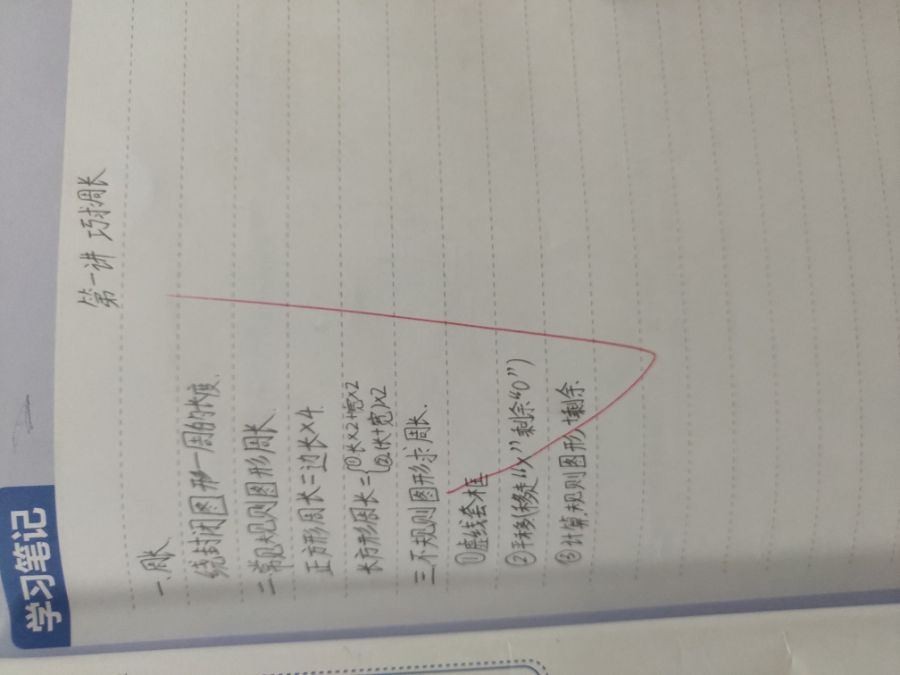 学习笔记
第一讲 巧求周长
一、周长
绕封闭图形一周的的长度.
二.常见规则图形周长
正方形周长=边长×4
长方形周长={①长×2+宽×2
②(长+宽)×2
三.不规则图形求周长.
①虚线套框
②平移(移走“×”剩余“0”)
③计算规则图形+剩余